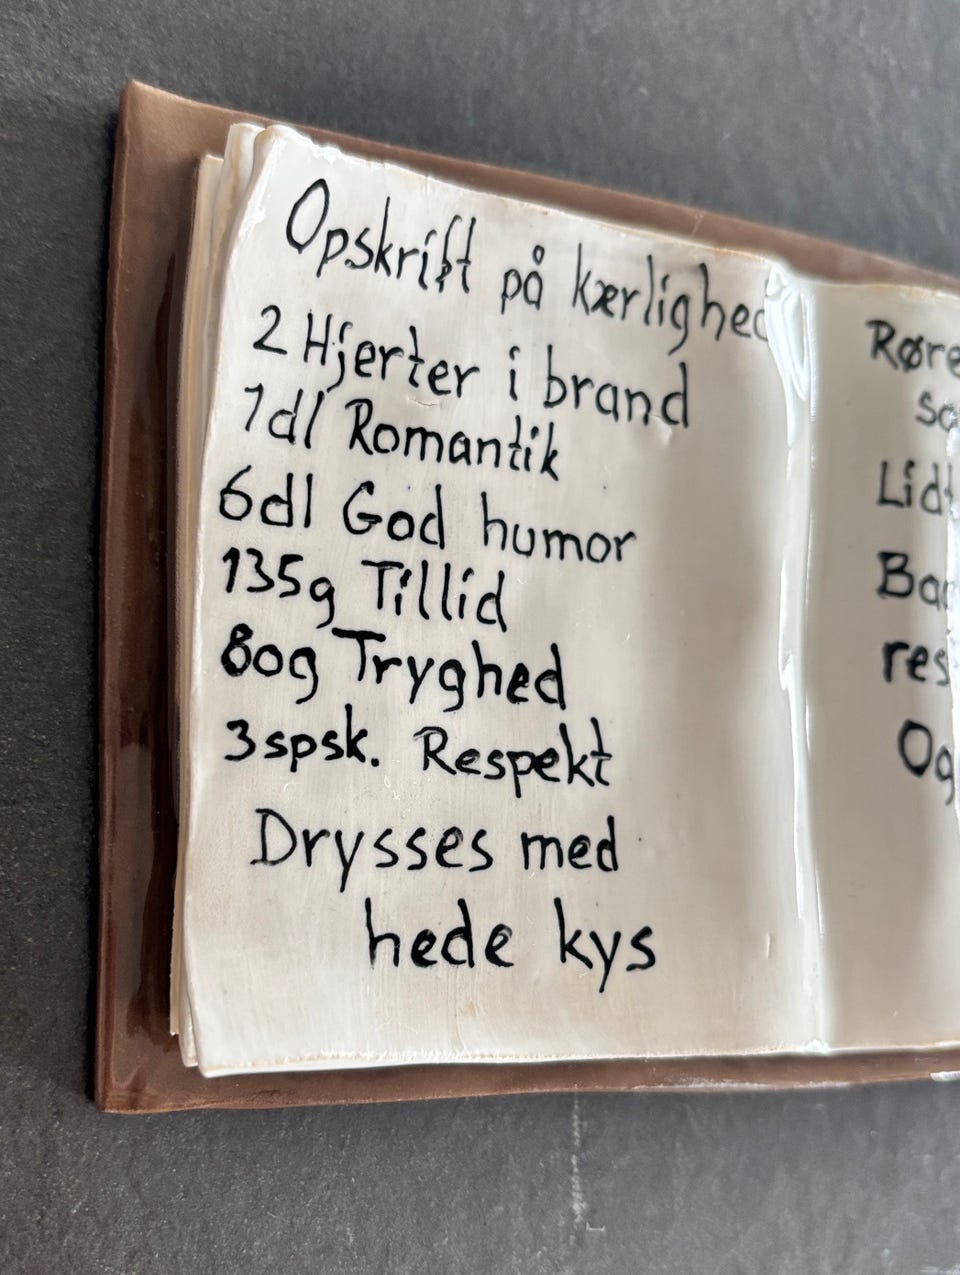 Opskrift på kærlighed
2 Hjerter i brand
1dl Romantik
6dl God humor
135g Tillid
80g Tryghed
3spsk. Respekt
Drysses med
hede kys
Røre
Og